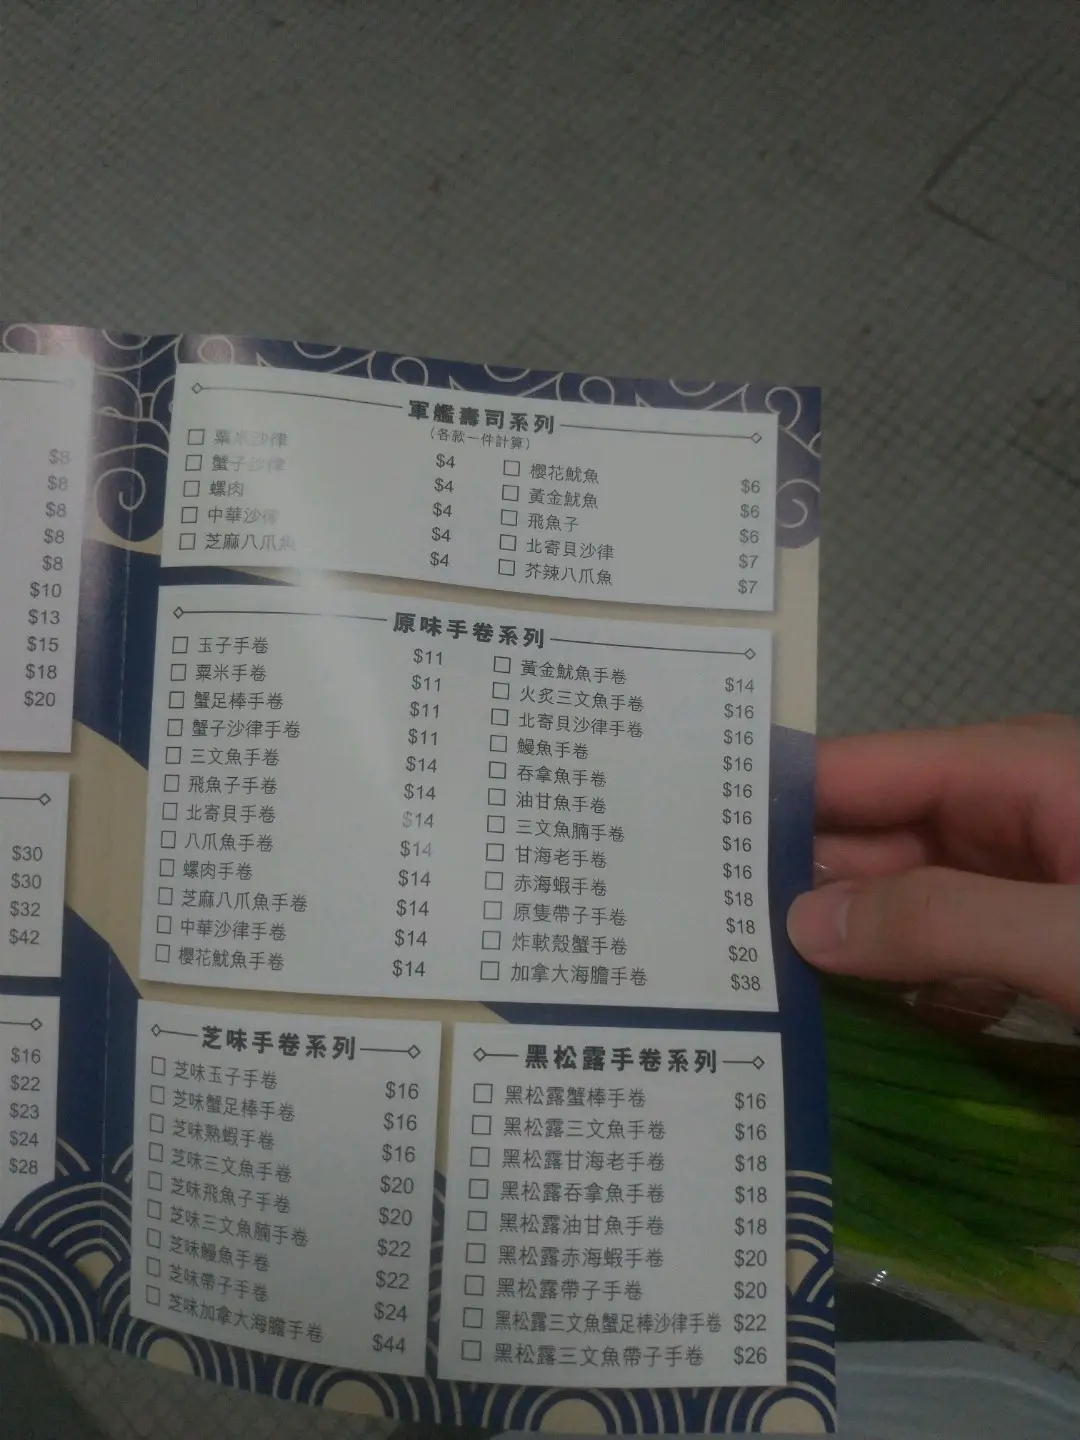 $8
$8
$8
$8
$8
$10
$13
$15
$18
$20
$30
$30
$32
$42
$16
$22
$23
$24
$28
軍艦壽司系列
(各款一件計算)
粟米沙律 $4
蟹子沙律 $4
螺肉 $4
中華沙律 $4
芝麻八爪魚 $4
櫻花魷魚 $6
黃金魷魚 $6
飛魚子 $6
北寄貝沙律 $7
芥辣八爪魚 $7
原味手卷系列
玉子手卷 $11
粟米手卷 $11
蟹足棒手卷 $11
蟹子沙律手卷 $11
三文魚手卷 $14
飛魚子手卷 $14
北寄貝手卷 $14
八爪魚手卷 $14
螺肉手卷 $14
芝麻八爪魚手卷 $14
中華沙律手卷 $14
櫻花魷魚手卷 $14
黃金魷魚手卷 $14
火炙三文魚手卷 $16
北寄貝沙律手卷 $16
鰻魚手卷 $16
吞拿魚手卷 $16
油甘魚手卷 $16
三文魚腩手卷 $16
甘海老手卷 $16
赤海蝦手卷 $18
原隻帶子手卷 $18
炸軟殼蟹手卷 $20
加拿大海膽手卷 $38
芝味手卷系列
芝味玉子手卷 $16
芝味蟹足棒手卷 $16
芝味熟蝦手卷 $16
芝味三文魚手卷 $20
芝味飛魚子手卷 $20
芝味三文魚腩手卷 $22
芝味鰻魚手卷 $22
芝味帶子手卷 $24
芝味加拿大海膽手卷 $44
黑松露手卷系列
黑松露蟹棒手卷 $16
黑松露三文魚手卷 $16
黑松露甘海老手卷 $18
黑松露吞拿魚手卷 $18
黑松露油甘魚手卷 $18
黑松露赤海蝦手卷 $20
黑松露帶子手卷 $20
黑松露三文魚蟹足棒沙律手卷 $22
黑松露三文魚帶子手卷 $26